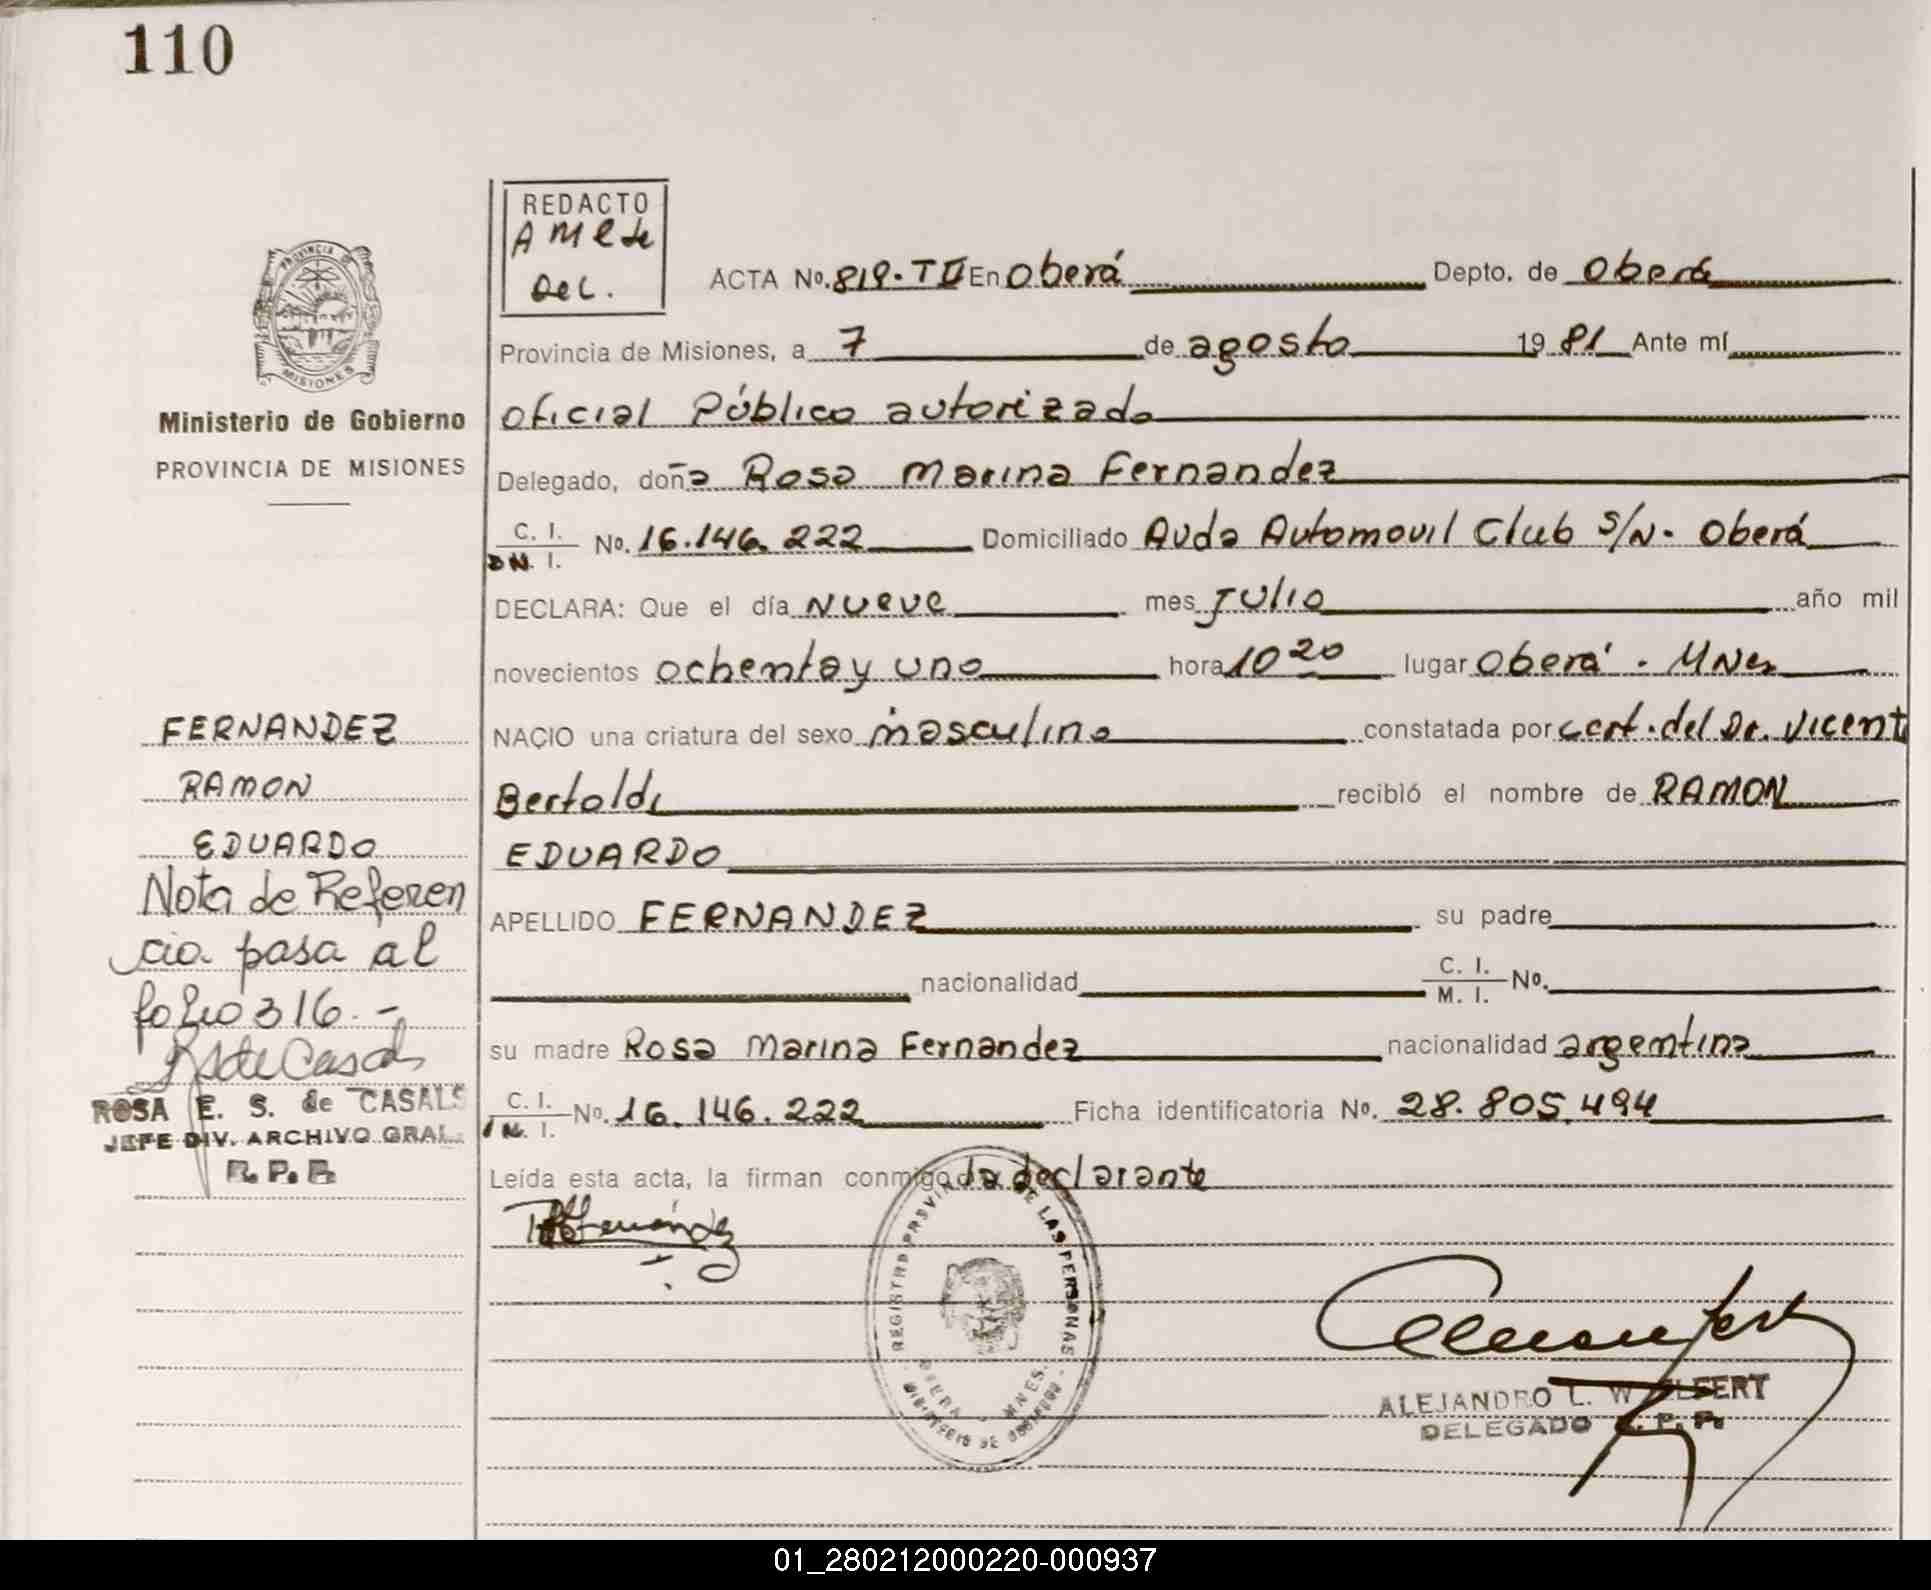 110
REDACTO
DEL.
ACTA No. 819. T II En Oberá Depto. de Oberá
PROVINCIA DE
MISIONES
Provincia de Misiones, a 7 de agosto 1981 Ante mí
Ministerio de Gobierno
PROVINCIA DE MISIONES
oficial Público autorizado
Delegado, doña Rosa Marina Fernandez
C. I.
DN. I. No. 16.146.222 Domiciliado Avda Automovil Club S/N. Oberá
DECLARA: Que el día nueve mes julio año mil
novecientos ochenta y uno hora 10 20 lugar Oberá. Mnes
NACIO una criatura del sexo masculino constatada por cert. del Dr. Vicent
Bertoldi recibió el nombre de RAMON
EDUARDO
APELLIDO FERNANDEZ su padre
nacionalidad C. I.
M. I. No.
su madre Rosa Marina Fernandez nacionalidad argentina
C. I.
M. I. No. 16.146.222 Ficha identificatoria No. 28.805.494
Leída esta acta, la firman conmigo la declarante
FERNANDEZ
RAMON
EDUARDO
Nota de Referen
cia pasa al
folio 316.-
ROSA E. S. de CASALS
JEFE DIV. ARCHIVO GRAL.
R. P. P.
REGISTRO PROVINCIAL DE LAS PERSONAS
OBERA - MNES.
MINISTERIO DE GOBIERNO
ALEJANDRO L. W LFERT
DELEGADO R. P. P.
01_280212000220-000937